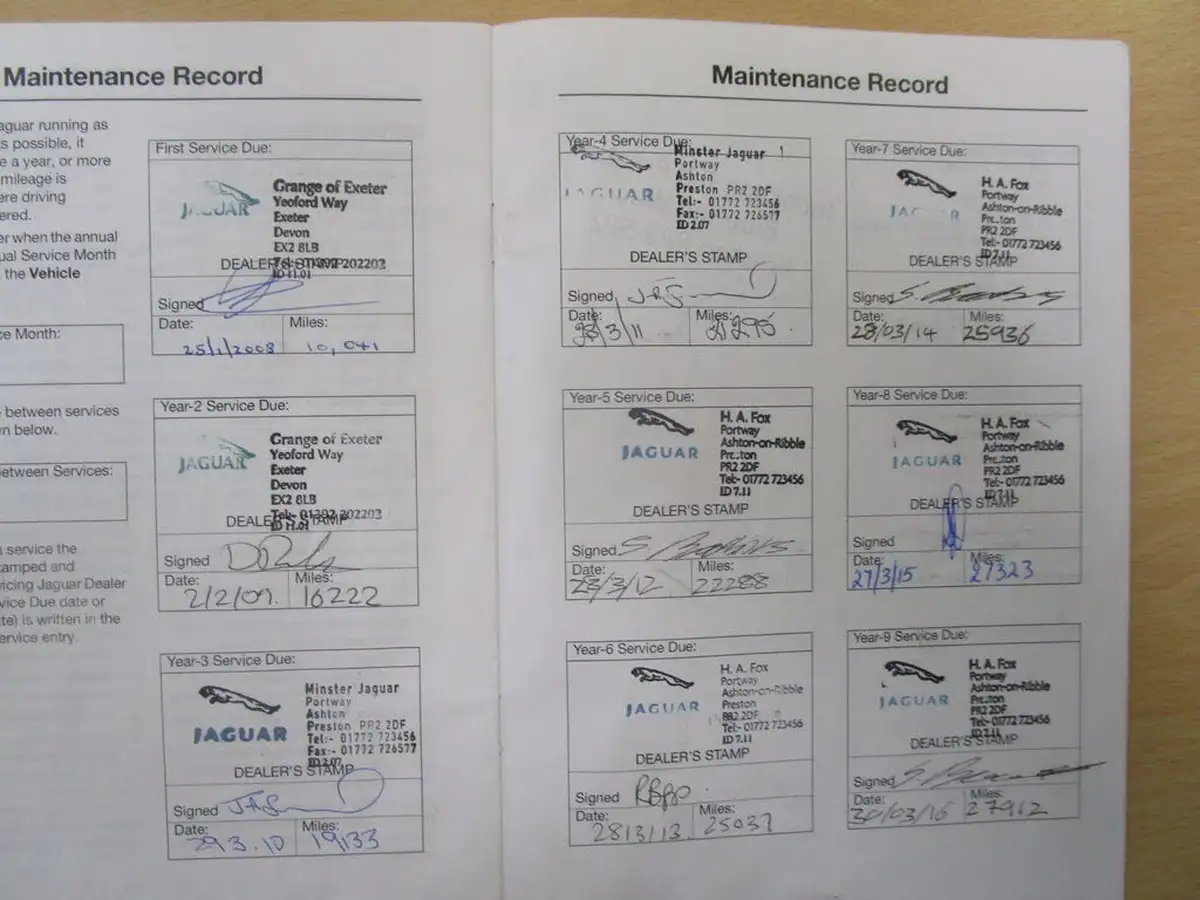 Maintenance Record
aguar running as
s possible, it
e a year, or more
mileage is
ere driving
ered.
er when the annual
ual Service Month
the Vehicle
ce Month:
between services
n below.
etween Services:
service the
tamped and
vicing Jaguar Dealer
vice Due date or
te) is written in the
ervice entry.
First Service Due:
JAGUAR
Grange of Exeter
Yeoford Way
Exeter
Devon
EX2 8LB
Tel:- 01392 202203
ID 11.01
DEALER'S STAMP
Signed
Date: Miles:
25/1/2008 10,041
Year-2 Service Due:
JAGUAR
Grange of Exeter
Yeoford Way
Exeter
Devon
EX2 8LB
Tel:- 01392 202203
ID 11.01
DEALER'S STAMP
Signed
Date: Miles:
2/2/09. 16222
Year-3 Service Due:
JAGUAR
Minster Jaguar
Portway
Ashton
Preston PR2 2DF
Tel:- 01772 723456
Fax:- 01772 726577
ID 2.07
DEALER'S STAMP
Signed
Date: Miles:
29.3.10 19133
Maintenance Record
Year-4 Service Due:
JAGUAR
Minster Jaguar
Portway
Ashton
Preston PR2 2DF
Tel:- 01772 723456
Fax:- 01772 726577
ID 2.07
DEALER'S STAMP
Signed
Date: Miles:
/3/11 21295
Year-5 Service Due:
JAGUAR
H. A. Fox
Portway
Ashton-on-Ribble
Pre.ton
PR2 2DF
Tel:- 01772 723456
ID 7.11
DEALER'S STAMP
Signed
Date: Miles:
28/3/12 22288
Year-6 Service Due:
JAGUAR
H. A. Fox
Portway
Ashton-on-Ribble
Preston
PR2 2DF
Tel:- 01772 723456
ID 7.11
DEALER'S STAMP
Signed
Date: Miles:
28/3/13 25037
Year-7 Service Due:
JAGUAR
H. A. Fox
Portway
Ashton-on-Ribble
Pre.ton
PR2 2DF
Tel:- 01772 723456
ID 7.11
DEALER'S STAMP
Signed
Date: Miles:
28/03/14 25936
Year-8 Service Due:
JAGUAR
H. A. Fox
Portway
Ashton-on-Ribble
Pre.ton
PR2 2DF
Tel:- 01772 723456
ID 7.11
DEALER'S STAMP
Signed
Date: Miles:
27/3/15 27323
Year-9 Service Due:
JAGUAR
H. A. Fox
Portway
Ashton-on-Ribble
Pre.ton
PR2 2DF
Tel:- 01772 723456
DEALER'S STAMP
Signed
Date: Miles:
30/03/16 27912